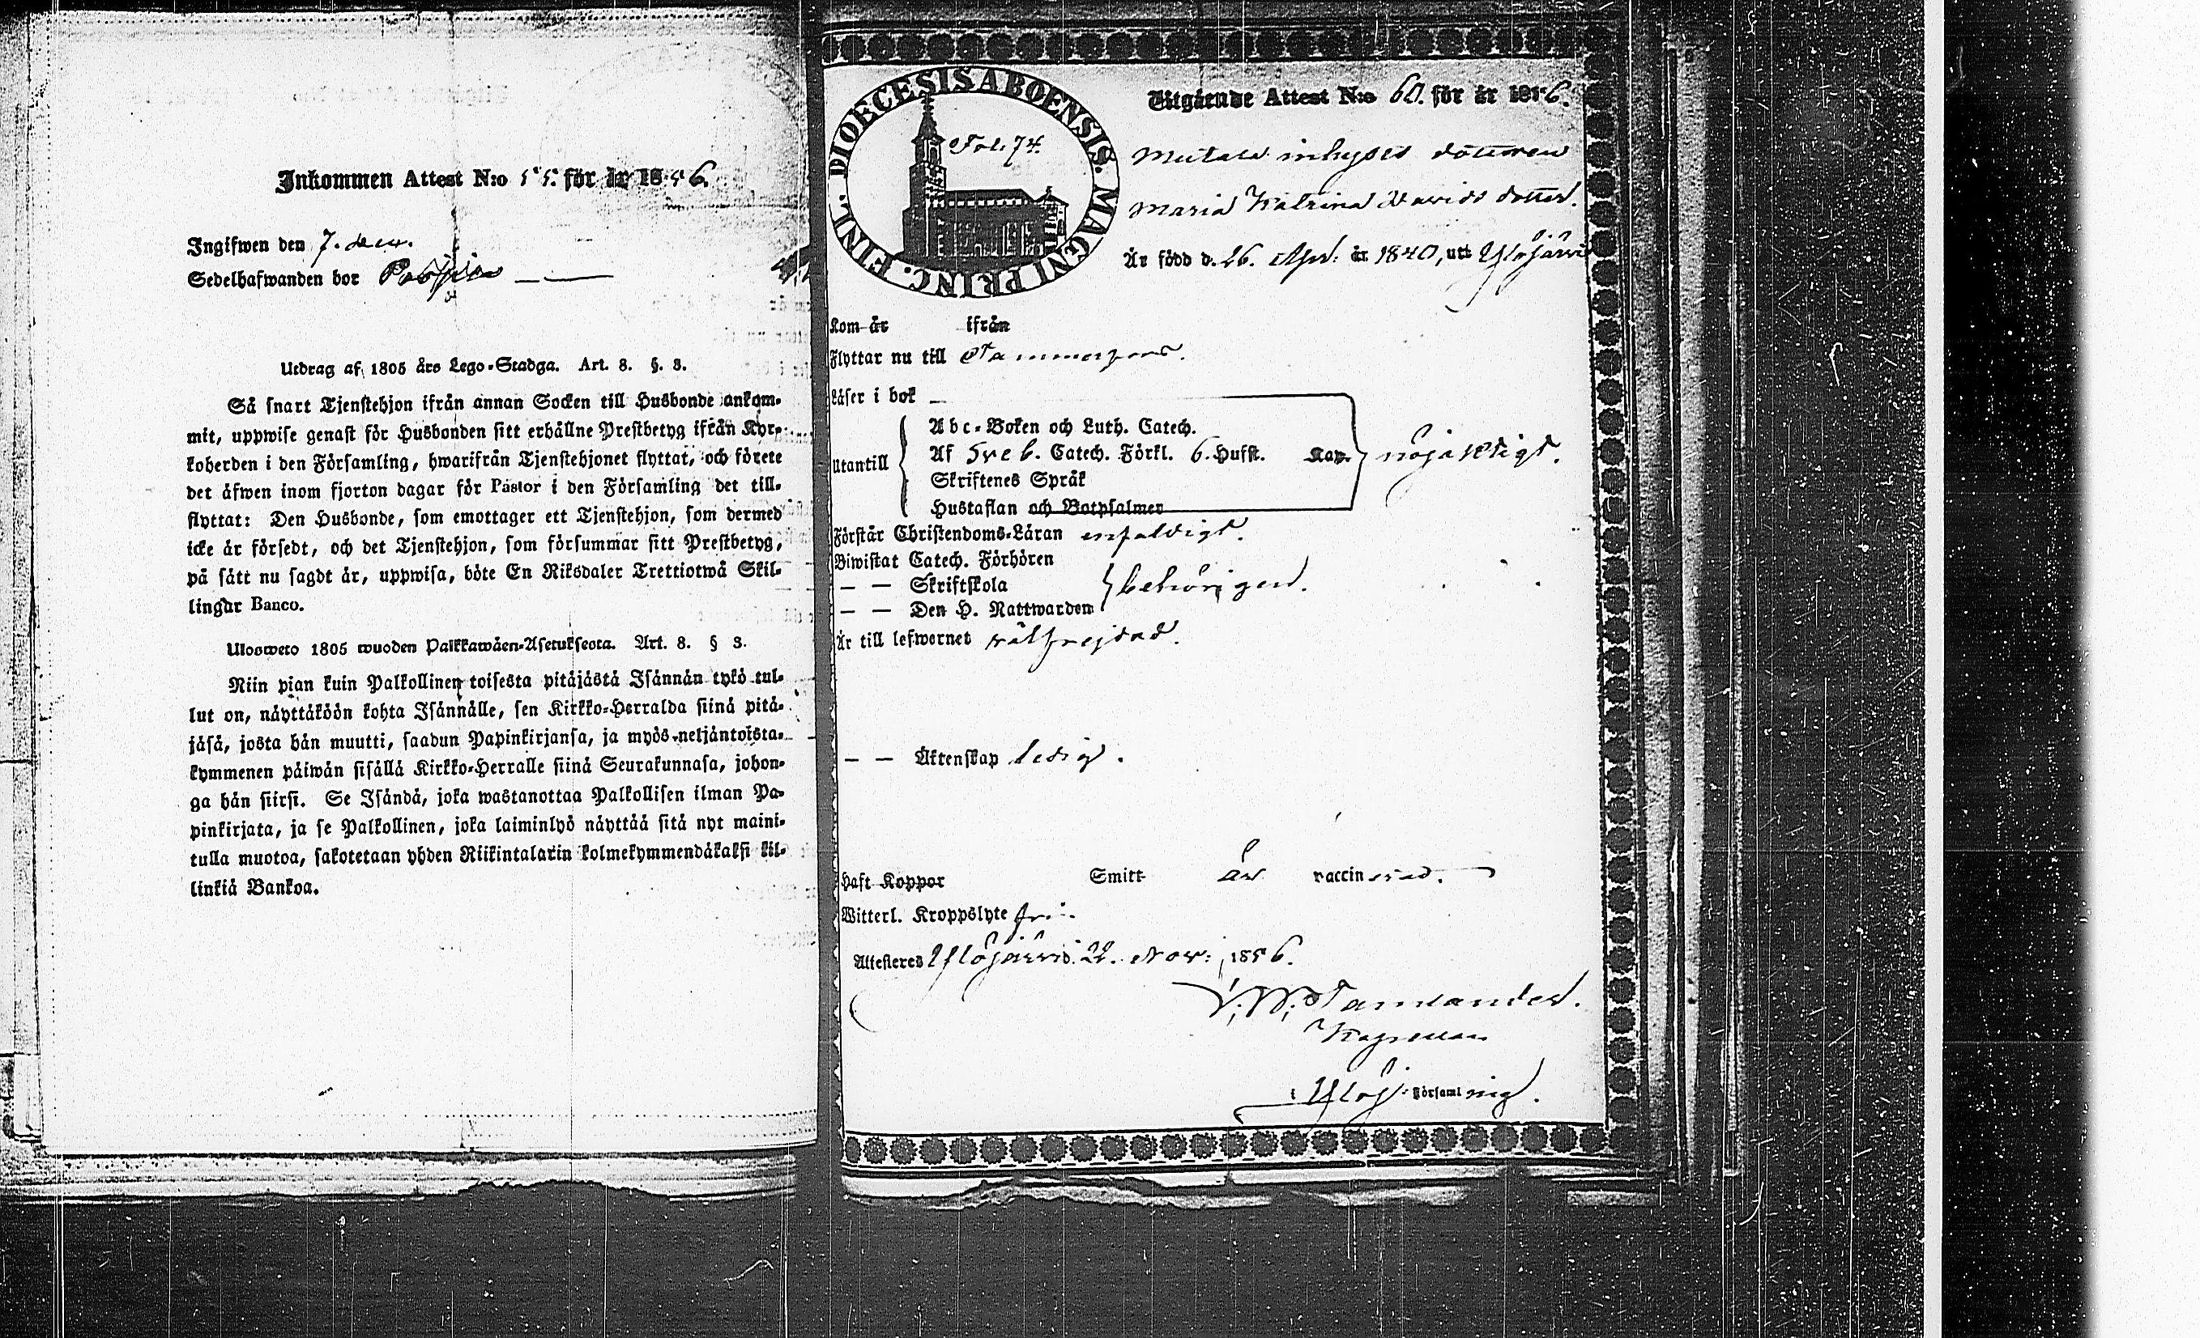 Inkommen Attest N:o 55. för år 1856.
Ingifwen den 7. dec.
Sedelhafwanden bor
Utdrag af 1805 års Lego-Stadga. Art. 8. §. 3.
Så snart Tjenstehjon ifrån annan Socken till Husbonde ankom-
mit, uppwise genast för Husbonden sitt erhållne Prestbetyg ifrån Kyr-
koherden i den Församling, hwarifrån Tjenstehjonet flyttat, och förete
det äfwen inom fjorton dagar för Pastor i den Församling det till-
flyttat: Den Husbonde, som emottager ett Tjenstehjon, som dermed
icke är försedt, och det Tjenstehjon, som försummar sitt Prestbetyg,
på sätt nu sagdt är, uppwisa, böte En Riksdaler Trettiotwå Skil-
lingar Banco.
Ulosweto 1805 wuoden Palkkawäen-Asetuksesta. Art. 8. § 3.
Niin pian kuin Palkollinen toisesta pitäjästä Isännän tykö tul-
lut on, näyttäköön kohta Isännälle, sen Kirkko-Herralda siinä pitä-
jäsä, josta hän muutti, saadun Papinkirjansa, ja myös neljäntoista-
kymmenen päiwän sisällä Kirkko-Herralle siinä Seurakunnasa, johon-
ga hän siirsi. Se Isändä, joka wastanottaa Palkollisen ilman Pa-
pinkirjata, ja se Palkollinen, joka laiminlyö näyttää sitä nyt maini-
tulla muotoa, sakotetaan yhden Riikintalarin kolmekymmendäkaksi kil-
linkiä Bankoa.
DIOECESIS ABOENSIS. MAGNI PRINC. FINL.
Fol. 74.
Utgående Attest N:o 60. för år 1856.
inhyses dottren
Maria Katrina Davids dotter.
Är född d. 26. Apr: år 1840, uti Ylöjärvi
Kom år ifrån
Flyttar nu till Tammerfors.
Läser i bok
Abc-Boken och Luth. Catech.
Utantill Af Sveb. Catech. Förkl. 6. Hufst. Kap. nöjaktigt.
Skriftenes Språk
Hustaflan och Botpsalmer
Förstår Christendoms-Läran enfaldigt.
Biwistat Catech. Förhören
— — Skriftskola behörigen.
— — Den H. Nattwarden
Är till lefwernet välfrejdad.
— — Äktenskap ledig.
Haft Koppor Smitt är vaccinerad.
Witterl. Kroppslyte fri.
Attesteras Ylöjärvi 22. Nov: 1856.
Kapellan
i Ylöj: Församling.